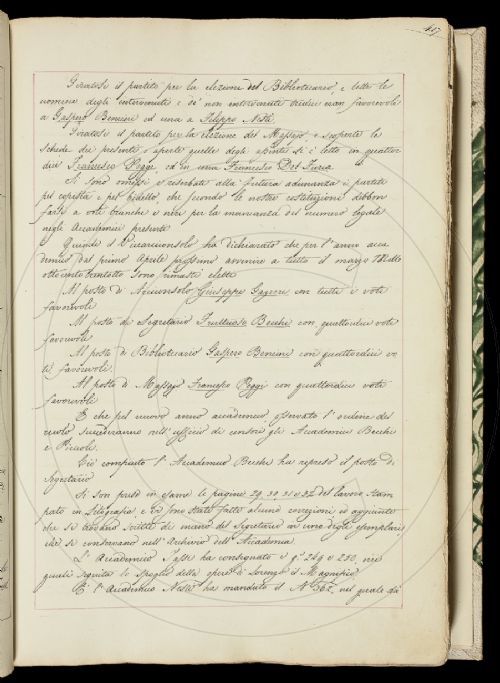 417
Giratosi il partito per la elezione del Bibliotecario, e lette le
nomine degli intervenuti e de' non intervenuti furon favorevoli
a Gaspero Bencini ed una a Filippo Nesti.
Giratosi il partito per la elezione del Massajo, e scoperte le
schede dei presenti e aperte quelle degli assenti si è letto in quattor
dici Francesco Poggi, ed in una Francesco Del Furia.
Si sono omessi e riserbati alla futura adunanza i partiti
pel e pel bidello, che secondo le nostre costituzioni debbon
farsi a voti bianchi e neri per la mancanza del numero legale
negli Accademici presenti
Quindi il Vicearciconsolo ha dichiarato che per l'anno acca
demico dal primo Aprile prossimo avvenire a tutto il marzo mille
ottocento trentotto sono rimasti eletti
Al posto di Arciconsolo Giuseppe Gazzeri con tutti i voti
favorevoli
Al posto di Segretario Fruttuoso Becchi con quattordici voti
favorevoli
Al posto di Bibliotecario Gaspero Bencini con quattordici vo
ti favorevoli
Al posto di Massajo Francesco Poggi con quattordici voti
favorevoli
E che pel nuovo anno accademico osservato l'ordine del
ruolo succederanno nell'uffizio di censori gli Accademici Becchi
e
Ciò compiuto l'Accademico Becchi ha ripreso il posto di
Segretario
Si son prese in esame le pagine 29, 30, 31 e 32 del lavoro stam
pato in litografia, e vi sono state fatte alcune correzioni ed aggiunte
che si troveranno scritte di mano del Segretario in uno degli esemplari,
che si conservano nell'Archivio dell'Accademia.
L'Accademico ha consegnato i q.i 249 e 250, nei
quali seguita lo spoglio delle opere di Lorenzo il Magnifico
E l'Accademico Nesti ha mandato il N.o 362, nel quale dà